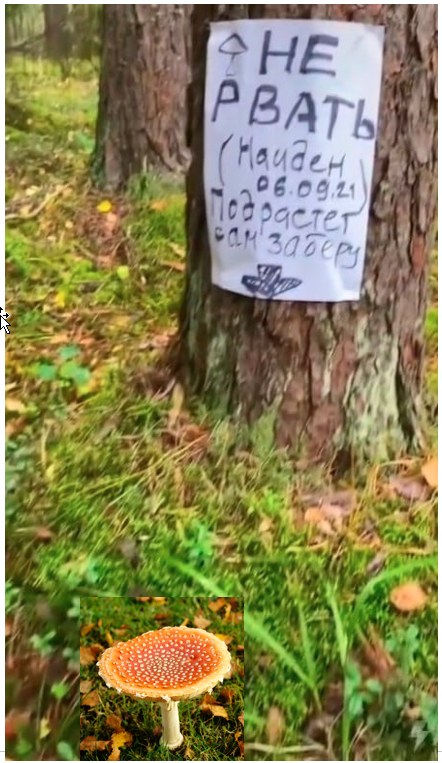 НЕ
РВАТЬ
(Найден
06.09.21)
Подрастет
сам заберу